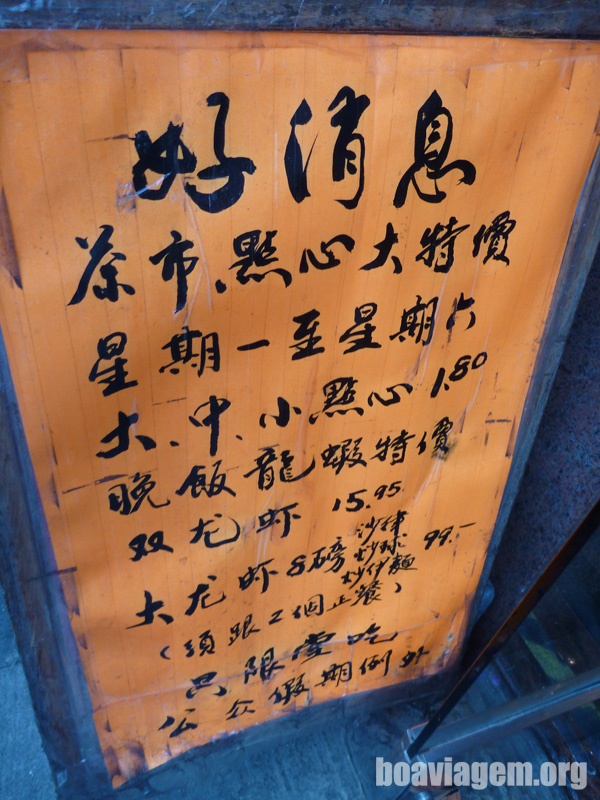 好消息
茶市、點心大特價
星期一至星期六
大、中、小點心 1.80
晚飯龍蝦特價
双龙虾 15.95
大龙虾 8磅 沙律 炒球 炒伊麵 99.-
(須跟2個正餐)
只限堂吃
公众假期例外
boaviagem.org